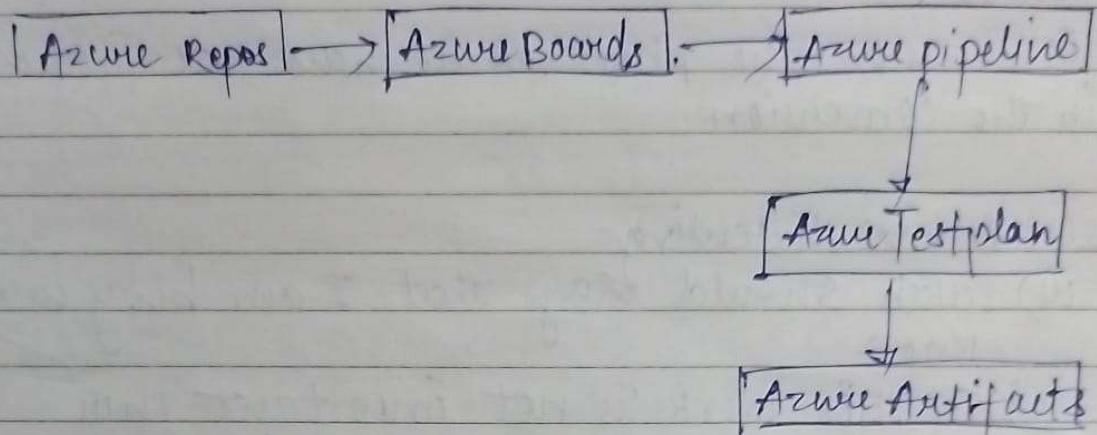 Azure Repos → Azure Boards. → Azure pipeline
Azure Testplan
Azure Artifacts